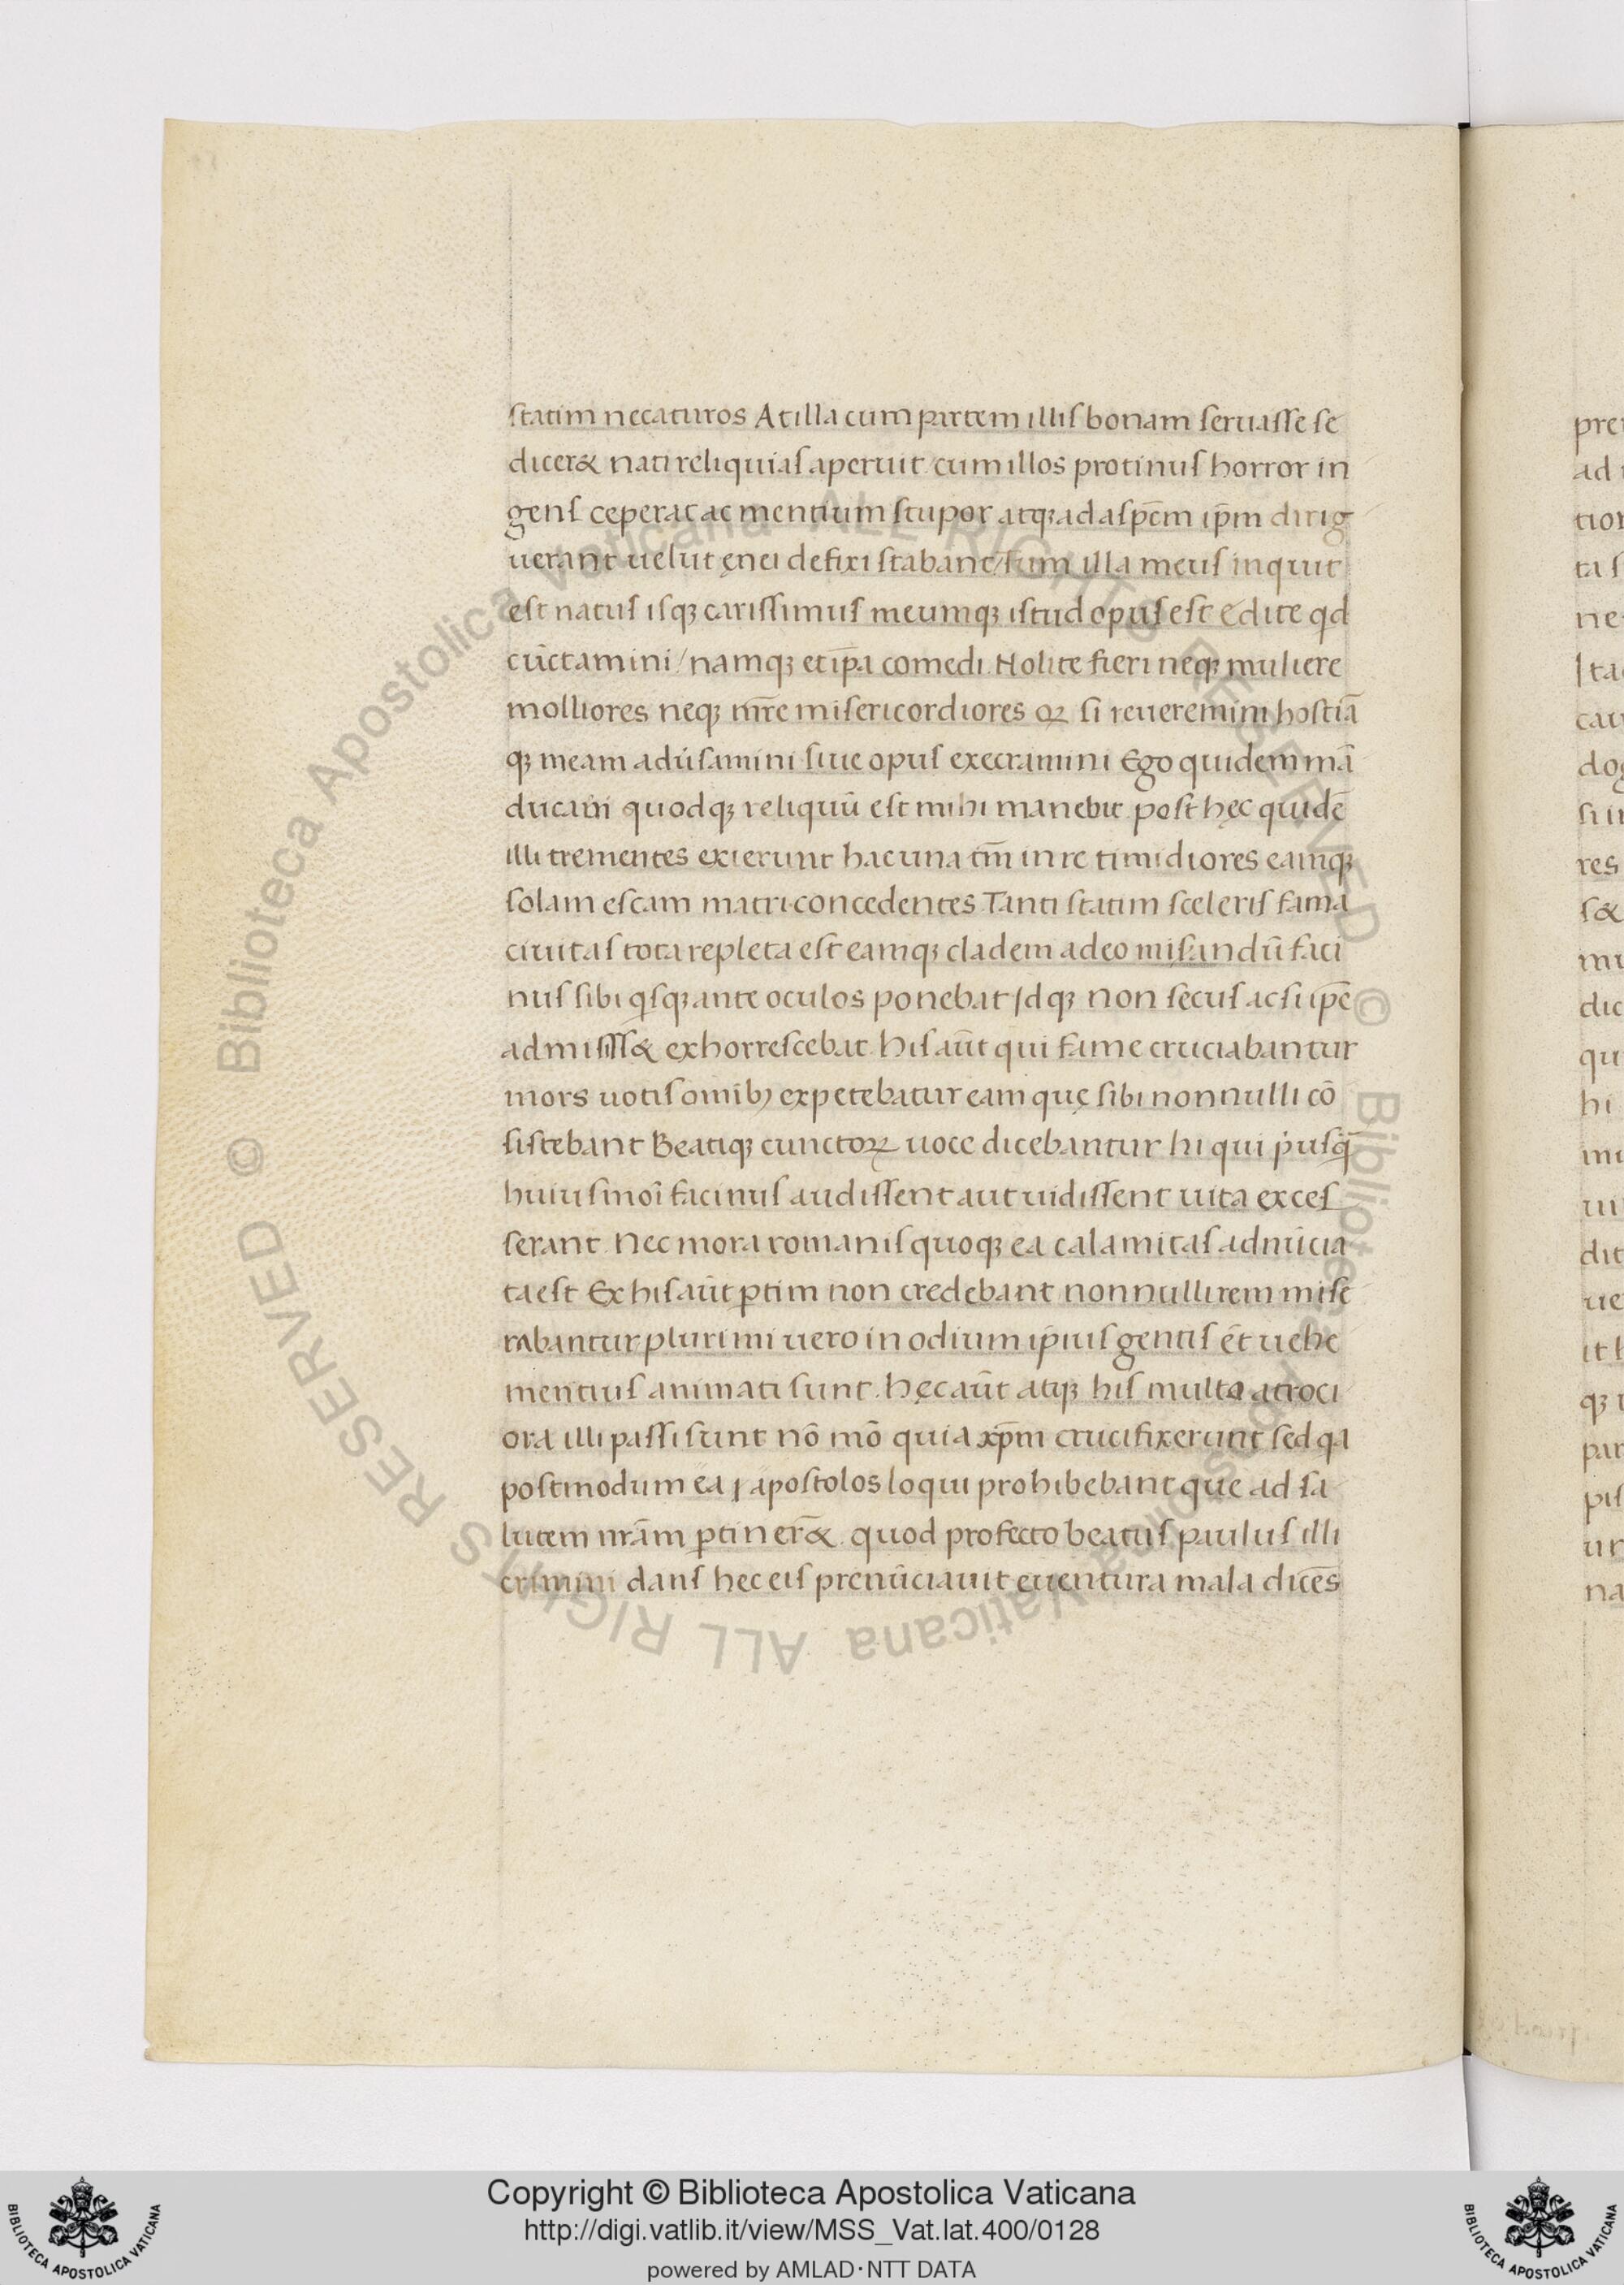 statim necaturos Atilla cum partem illis bonam seruasse se
dicer& nati reliquias aperuit cum illos protinus horror in
gens ceperat ac mentium stupor atqꝫ ad aspēm ip̄m dirig
uerant uelut ęnei defixi stabant/ tum illa meus inquit
est natus isqꝫ carissimus meumqꝫ istud opus est edite qd
cūctamini/ namqꝫ et ip̄a comedi. Nolite fieri neqꝫ muliere
molliores neqꝫ mr̄e misericordiores qꝫ si reueremini hostiā
qꝫ meam adūsamini siue opus execramini Ego quidem mā
ducaui quodqꝫ reliquū est mihi manebit post hęc quidē
illi trementes exierunt hac una tm̄ in re timidiores eamqꝫ
solam escam matri concedentes Tanti statim sceleris fama
ciuitas tota repleta est eamqꝫ cladem adeo misandū faci
nus sibi qsqꝫ ante oculos ponebat Idqꝫ non secus ac si ip̄e
admisiss& exhorrescebat. his aūt qui fame cruciabantur
mors uotis omībꝫ expetebatur eam quę sibi nonnulli cō
sistebant Beatiqꝫ cunctoꝝ uoce dicebantur hi qui pusq̄
huiusmoī facinus audissent aut uidissent uita exces
serant. Nec mora romanis quoqꝫ ea calamitas adnūcia
ta est Ex his aūt ꝑtim non credebant nonnulli rem mise
rabantur plurimi uero in odium ip̄ius gentis ēt uehe
mentius animati sunt. hęc aūt atqꝫ his multo atroci
ora illi passi sunt nō mō quia xp̄m crucifixerunt sed qa
postmodum ea j apostolos loqui prohibebant que ad sa
lutem nr̄am ꝑtiner& quod profecto beatus paulus illi
crimini dans hec eis prenūciauit euentura mala dicēs
pre
ad
tior
ta s
ne
sta
cau
dog
sui
res
s&
mu
dic
qu
hi
mi
ui
dit
ue
it h
qꝫ
par
pis
ur
na
© Biblioteca Apostolica Vaticana ALL RIGHTS RESERVED
© Biblioteca Apostolica Vaticana ALL RIGHTS RESERVED
Copyright © Biblioteca Apostolica Vaticana
http://digi.vatlib.it/view/MSS_Vat.lat.400/0128
powered by AMLAD·NTT DATA
BIBLIOTECA APOSTOLICA VATICANA
BIBLIOTECA APOSTOLICA VATICANA